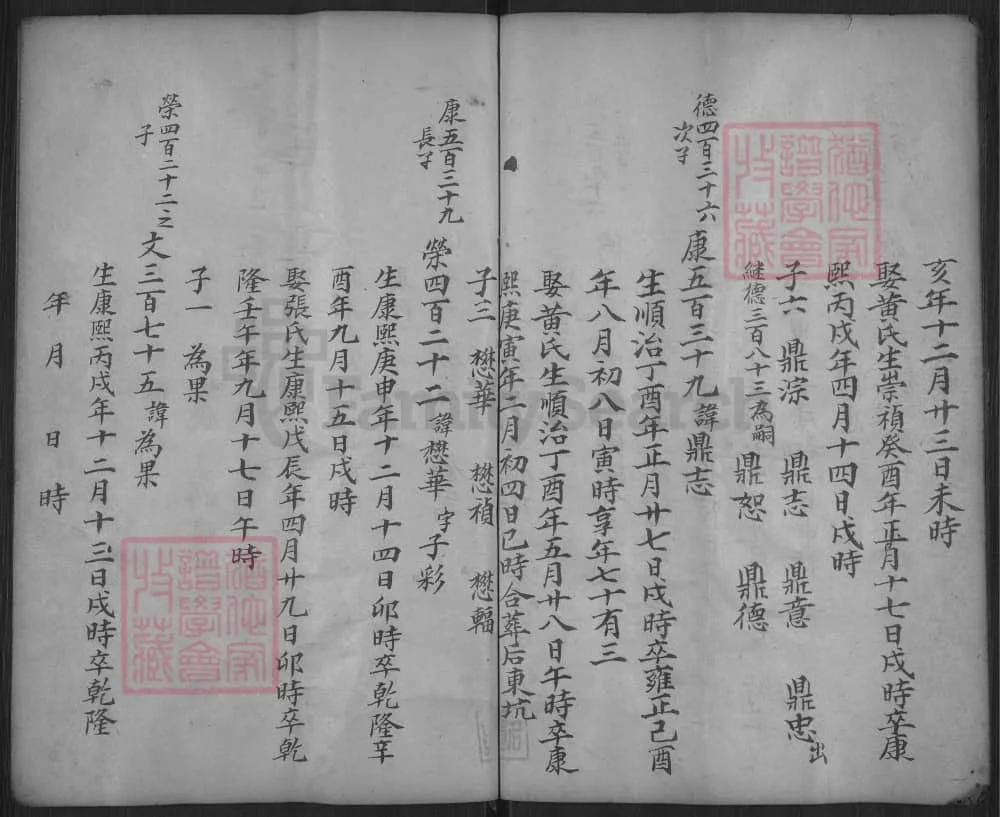 亥年十二月廿三日未時
娶黃氏生崇禎癸酉年正月十七日戌時卒康
熙丙戌年四月十四日戌時
子六 鼎淙 鼎志 鼎意 鼎忠出
継德三百八十三為嗣 鼎恕 鼎德
德四百三十六
次子
康五百三十九 諱鼎志
生順治丁酉年正月廿七日戌時卒雍正己酉
年八月初八日寅時享年七十有三
娶黃氏生順治丁酉年五月廿八日午時卒康
熙庚寅年二月初四日巳時合葬后東坑
子三 懋華 懋禎 懋輻
康五百三十九
長子
榮四百二十二 諱懋華 字子彩
生康熙庚申年十二月十四日卯時卒乾隆辛
酉年九月十五日戌時
娶張氏生康熙戊辰年四月廿九日卯時卒乾
隆壬午年九月十七日午時
子一 為果
榮四百二十二之
子
文三百七十五 諱為果
生康熙丙戌年十二月十三日戌時卒乾隆
年 月 日 時
FamilySearch